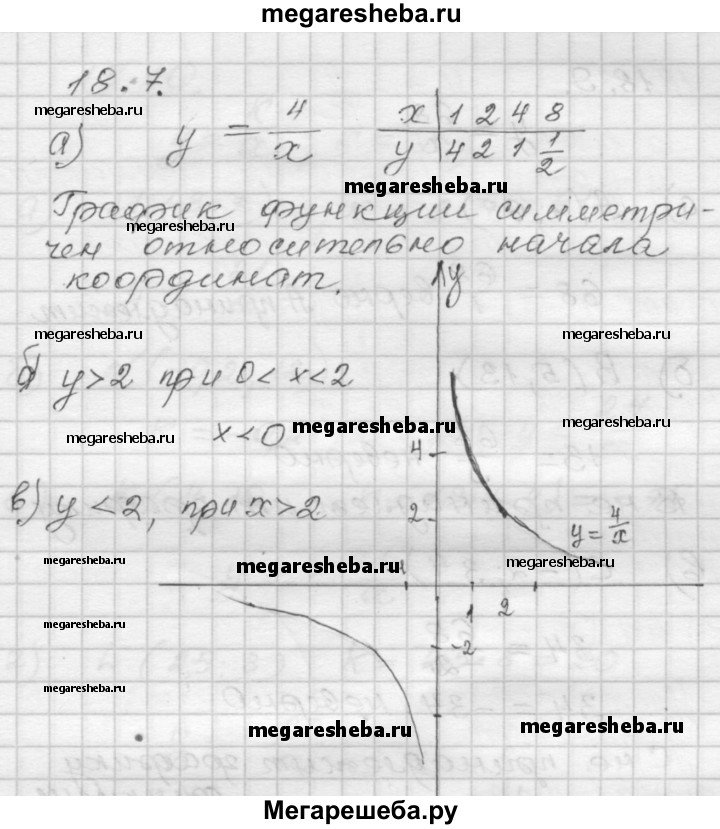 megaresheba.ru
18.7.
megaresheba.ru
а) y = 4/x
x 1 2 4 8
y 4 2 1 1/2
megaresheba.ru
График функции симметри-
megaresheba.ru
чен относительно начала
координат.
y
megaresheba.ru
megaresheba.ru
б) y > 2 при 0 < x < 2
megaresheba.ru
x < 0
megaresheba.ru
megaresheba.ru
4
в) y < 2, при x > 2
2
y = 4/x
megaresheba.ru
megaresheba.ru
megaresheba.ru
1 2
megaresheba.ru
-2
megaresheba.ru
megaresheba.ru
megaresheba.ru
Мегарешеба.ру